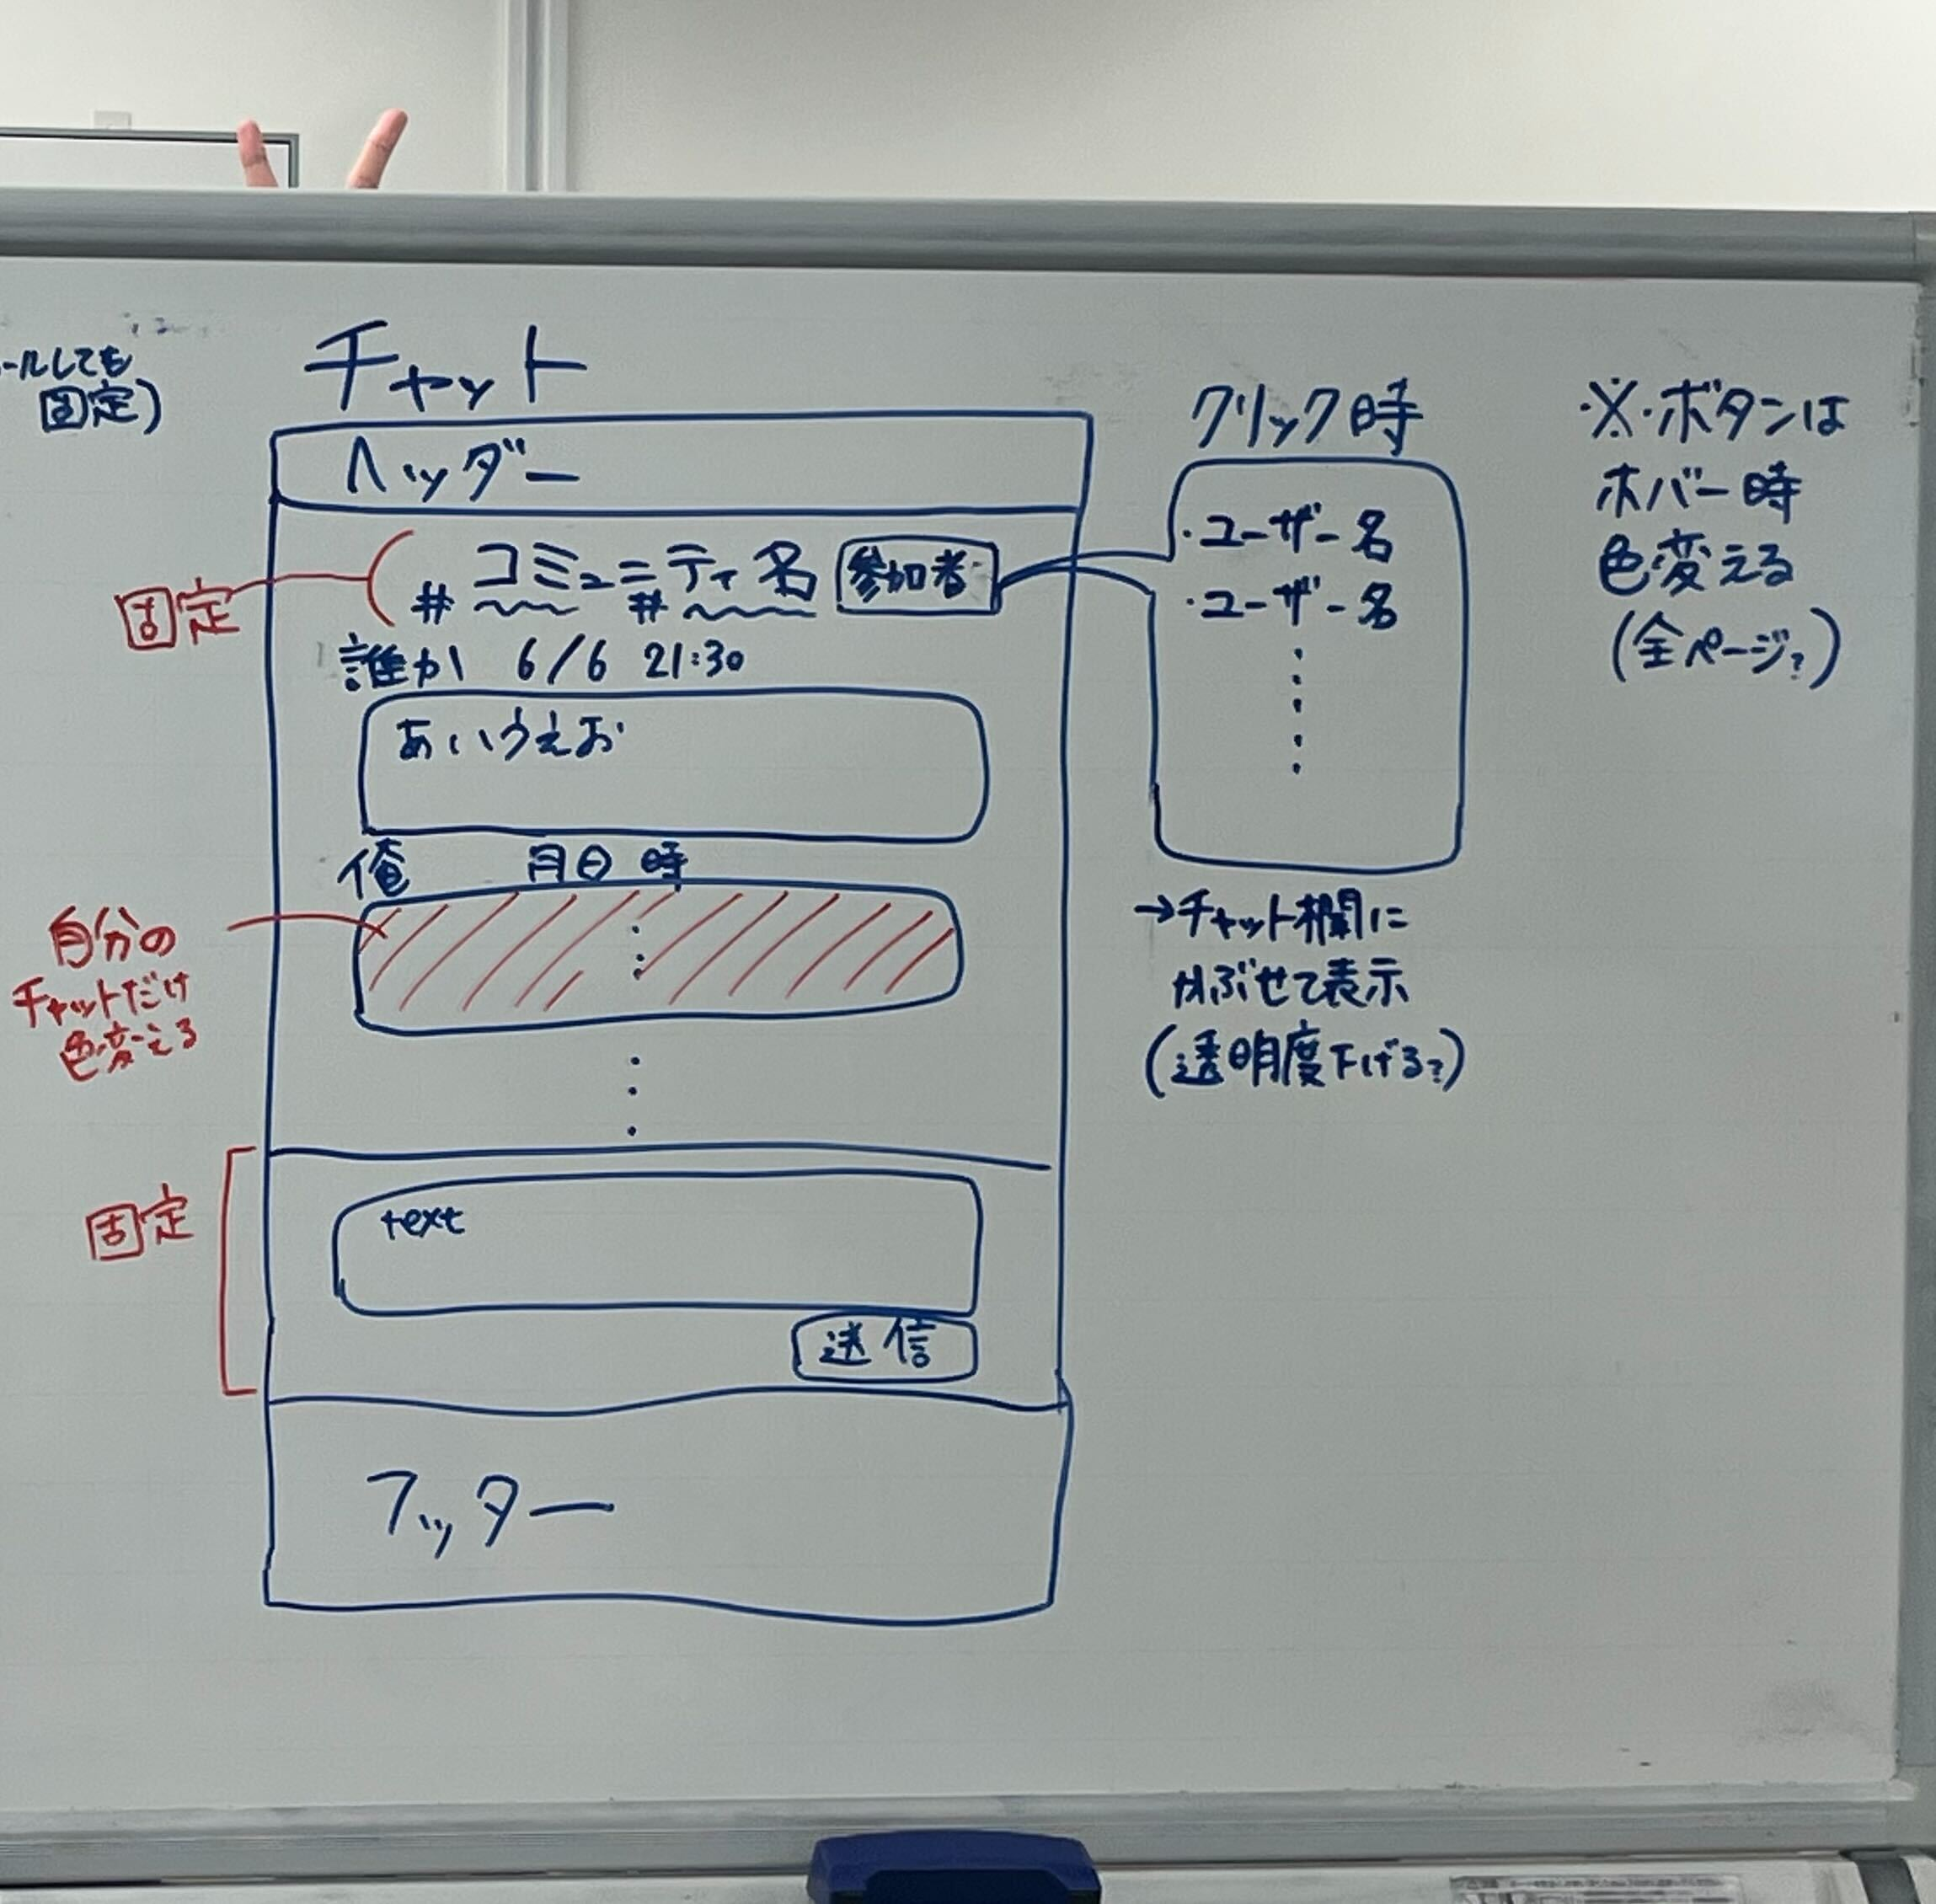 ールしても
固定)
チャット
ヘッダー
固定
コミュニティ名
参加者
# #
誰か 6/6 21:30
あいうえお
俺 月日 時
自分の
チャットだけ
色変える
固定
text
送信
フッター
クリック時
・ユーザー名
・ユーザー名
→チャット欄に
かぶせて表示
(透明度下げる?)
※・ボタンは
ホバー時
色変える
(全ページ?)